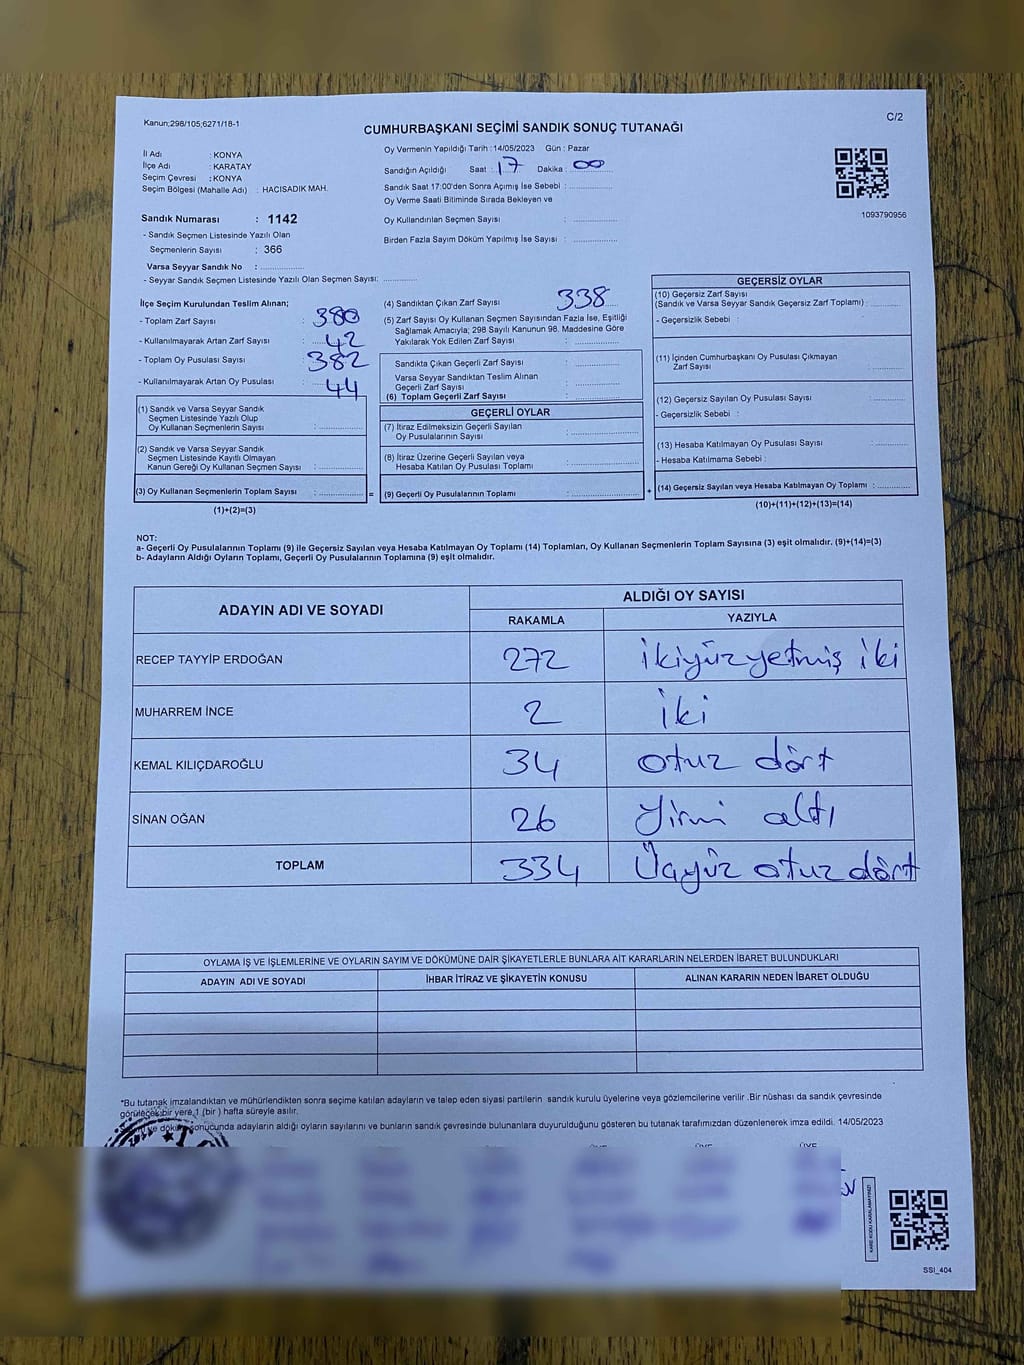 Kanun;298/105;6271/18-1
C/2
CUMHURBAŞKANI SEÇİMİ SANDIK SONUÇ TUTANAĞI
İl Adı : KONYA
İlçe Adı : KARATAY
Seçim Çevresi : KONYA
Seçim Bölgesi (Mahalle Adı) : HACISADIK MAH.
Sandık Numarası : 1142
- Sandık Seçmen Listesinde Yazılı Olan
Seçmenlerin Sayısı : 366
Varsa Seyyar Sandık No : ....................
- Seyyar Sandık Seçmen Listesinde Yazılı Olan Seçmen Sayısı: ...............
Oy Vermenin Yapıldığı Tarih : 14/05/2023 Gün : Pazar
Sandığın Açıldığı Saat : 17 Dakika : 00
Sandık Saat 17:00'den Sonra Açımış İse Sebebi : ....................
Oy Verme Saati Bitiminde Sırada Bekleyen ve
Oy Kullandırılan Seçmen Sayısı : ....................
Birden Fazla Sayım Döküm Yapılmış İse Sayısı : ....................
1093790956
İlçe Seçim Kurulundan Teslim Alınan;
- Toplam Zarf Sayısı : 380
- Kullanılmayarak Artan Zarf Sayısı : 42
- Toplam Oy Pusulası Sayısı : 382
- Kullanılmayarak Artan Oy Pusulası : 44
(1) Sandık ve Varsa Seyyar Sandık
Seçmen Listesinde Yazılı Olup
Oy Kullanan Seçmenlerin Sayısı : ....................
(2) Sandık ve Varsa Seyyar Sandık
Seçmen Listesinde Kayıtlı Olmayan
Kanun Gereği Oy Kullanan Seçmen Sayısı : ....................
(3) Oy Kullanan Seçmenlerin Toplam Sayısı : .................... =
(1)+(2)=(3)
(4) Sandıktan Çıkan Zarf Sayısı : 338
(5) Zarf Sayısı Oy Kullanan Seçmen Sayısından Fazla İse, Eşitliği
Sağlamak Amacıyla; 298 Sayılı Kanunun 98. Maddesine Göre
Yakılarak Yok Edilen Zarf Sayısı : ....................
Sandıkta Çıkan Geçerli Zarf Sayısı : ....................
Varsa Seyyar Sandıktan Teslim Alınan
Geçerli Zarf Sayısı : ....................
(6) Toplam Geçerli Zarf Sayısı : ....................
GEÇERLİ OYLAR
(7) İtiraz Edilmeksizin Geçerli Sayılan
Oy Pusulalarının Sayısı : ....................
(8) İtiraz Üzerine Geçerli Sayılan veya
Hesaba Katılan Oy Pusulası Toplamı : ....................
(9) Geçerli Oy Pusulalarının Toplamı : .................... +
GEÇERSİZ OYLAR
(10) Geçersiz Zarf Sayısı
(Sandık ve Varsa Seyyar Sandık Geçersiz Zarf Toplamı) : ............
- Geçersizlik Sebebi :
(11) İçinden Cumhurbaşkanı Oy Pusulası Çıkmayan
Zarf Sayısı : ............
(12) Geçersiz Sayılan Oy Pusulası Sayısı : ............
- Geçersizlik Sebebi :
(13) Hesaba Katılmayan Oy Pusulası Sayısı : ............
- Hesaba Katılmama Sebebi :
(14) Geçersiz Sayılan veya Hesaba Katılmayan Oy Toplamı : ............
(10)+(11)+(12)+(13)=(14)
NOT:
a- Geçerli Oy Pusulalarının Toplamı (9) ile Geçersiz Sayılan veya Hesaba Katılmayan Oy Toplamı (14) Toplamları, Oy Kullanan Seçmenlerin Toplam Sayısına (3) eşit olmalıdır. (9)+(14)=(3)
b- Adayların Aldığı Oyların Toplamı, Geçerli Oy Pusulalarının Toplamına (9) eşit olmalıdır.
ADAYIN ADI VE SOYADI ALDIĞI OY SAYISI
RAKAMLA YAZIYLA
RECEP TAYYİP ERDOĞAN 272 ikiyüzyetmiş iki
MUHARREM İNCE 2 iki
KEMAL KILIÇDAROĞLU 34 otuz dört
SİNAN OĞAN 26 yirmi altı
TOPLAM 334 Üçyüz otuz dört
OYLAMA İŞ VE İŞLEMLERİNE VE OYLARIN SAYIM VE DÖKÜMÜNE DAİR ŞİKAYETLERLE BUNLARA AİT KARARLARIN NELERDEN İBARET BULUNDUKLARI
ADAYIN ADI VE SOYADI İHBAR İTİRAZ VE ŞİKAYETİN KONUSU ALINAN KARARIN NEDEN İBARET OLDUĞU
*Bu tutanak imzalandıktan ve mühürlendikten sonra seçime katılan adayların ve talep eden siyasi partilerin sandık kurulu üyelerine veya gözlemcilerine verilir .Bir nüshası da sandık çevresinde
görülecek bir yere 1 (bir ) hafta süreyle asılır.
ve döküm sonucunda adayların aldığı oyların sayılarını ve bunların sandık çevresinde bulunanlara duyurulduğunu gösteren bu tutanak tarafımızdan düzenlenerek imza edildi. 14/05/2023
KARE KODU KARALAMAYINIZ!
SSI_404